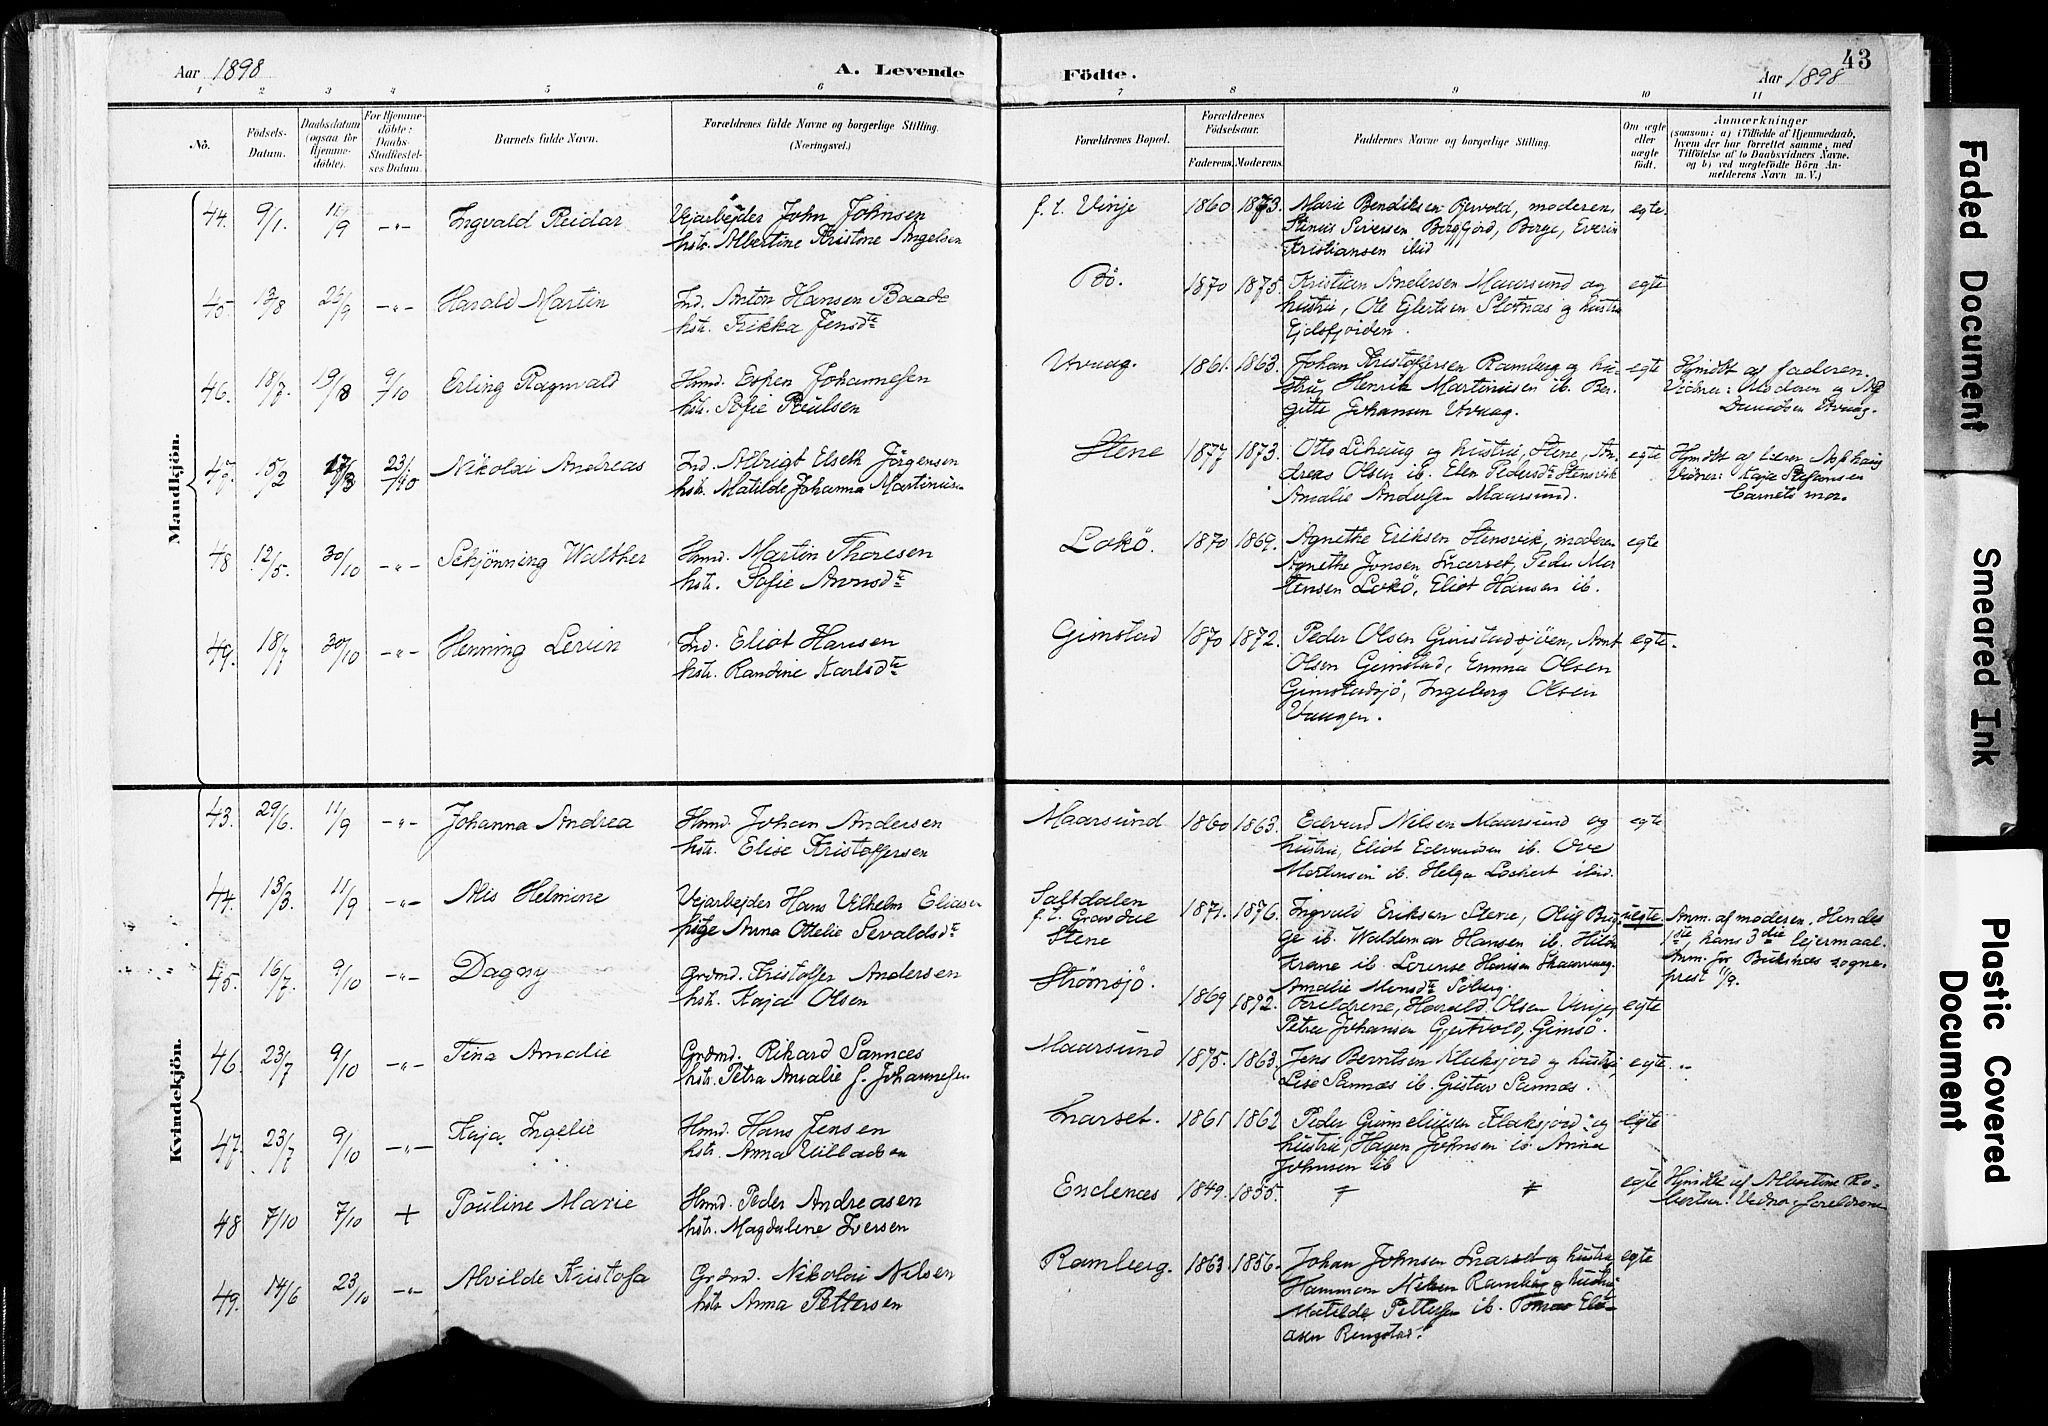 Aar 1898
A. Levende
Födte.
43
Aar 1898
1 2 3 4 5 6 7 8 9 10 11
No.
Födsels-
Datum.
Daabsdatum
(ogsaa for
Hjemme-
döbte).
For Hjemme-
döbte:
Daabs-
Stadfæstel-
ses Datum.
Barnets fulde Navn.
Forældrenes fulde Navne og borgerlige Stilling.
(Næringsvei.)
Forældrenes Bopæl.
Forældrenes
Födselsaar.
Faderens. Moderens.
Faddernes Navne og borgerlige Stilling.
Om ægte
eller
uægte
födt.
Anmærkninger
(saasom: a) i Tilfælde af Hjemmedaab,
hvem der har forrettet samme, med
Tilföielse af to Daabsvidners Navne.
og b) ved uægtefödte Börn An-
melderens Navn m. V.)
Mandkjön.
44. 9/1. 11/9 -"- Ingvald Reidar
Vejarbejder John Johnsen
hstr. Albertine Kristine Angelsen
f. t. Vinje 1860 1873.
Marie Bendiksen, moderen,
Siversen Borgfjord, Borge,
Kristiansen ibid
egte.
45. 13/8 25/9 -"- Harald Martin
Ind. Anton Hansen Baade
hst. Frikka Jensdte
Bö. 1870 1875.
Kristian Andersen Maarsund og
hustru, Ole Glertsen Slotnæs og hustru
Ejdsfjorden.
egte
46. 18/7. 19/8 9/10 Erling Ragnvald
Hmd. Espen Johannesen
hst. Sofie Paulsen
Utvaag. 1861. 1863.
Johan Kristoffersen Ramberg og hu-
stru, Henrik Martinusen ib. Ber-
gitte Johansen Utvaag.
egte
Hjmdbt af faderen.
Vidner: Moderen og
Utvaag.
47. 15/2 17/3 23/10 Nikolai Andreas
Ind. Albrigt Elseth Jörgensen
hst. Matilde Johanna Martinus.
Stene 1877 1873.
Otto Lihaug og hustru, Stene, An-
dreas Olsen ib. Elen Pedersdte Stensvik
Amalie Andersen Maarsund.
egte
Hjmdbt af
Vidner: Kaja Stefansen
barnets mor.
48 12/5. 30/10 -"- Schjönning Walther
Hmd. Martin Thoresen
hst. Sofie Arnsdte
Lokö. 1870 1869.
Agnethe Eriksen Stensvik, moderen
Agnethe Jonsen Snarset, Peder Mor-
tensen Lokö, Eliot Hansen ib.
egte
49. 18/7 30/10 -"- Henning Levin
Ind. Eliot Hansen
hst. Randine Karlsdte
Gimstad 1870 1872.
Peder Olsen Gimstadsjöen, Arnt
Olsen Gimstad, Emma Olsen
Gimstadsjö, Ingeborg Olsen
Vaagen.
egte.
Kvindekjön.
43. 29/6. 11/9 -"- Johanna Andrea
Hmd. Johan Andersen
hst. Elise Kristoffersen
Maarsund 1860 1863.
Edvard Nilsen Maarsund og
hustru, Eliot Edvardsen ib. Ove
Mortensen ib. Helga Lockert ibid.
egte
44. 13/3. 11/9 -"- Alis Helmine
Vejarbejder Hans Vilhelm Eliasen
pige Anna Ottelie Sevaldsdte
Saltdalen
f. t. Gravdal
Stene
1871. 1876.
Ingvald Eriksen Stene, Oluf Bug-
ge ib. Waldemar Hansen ib. Hilda
Krane ib. Lorense Hansen
Amalie Monsdte
uegte
Anm. af moderen. Hendes
1ste hans 3die lejermaal.
Anm. for Buksnes sogne-
prest 11/9.
45. 16/7. 9/10 -"- Dagny
Grdmd. Kristoffer Andersen
hst. Kaja Olsen
Strömsjö. 1869 1892.
Foreldrene, Harald Olsen Vinje,
Petra Johansen Gjertvold, Gimsö.
egte
46. 23/7 9/10 -"- Tina Amalie
Grdmd. Rikard Sannes
hst. Petra Amalie f. Johannesen
Maarsund 1875. 1863.
Jens Berntsen Klaksjord og hustru,
Lise Sannæs ib. Gustav Sannæs.
egte.
47. 23/7 9/10 -"- Kaja Ingelie
Hmd. Hans Jensen
hst. Anna
Snarset. 1861 1862
Peder Gunneliusen Klaksjord og
hustru, Hagen Johnsen ib. Anna
Johnsen ib
egte
48 7/10 7/10 + Pouline Marie
Hmd. Peder Andreasen
hst. Magdalene Iversen
Endenes 1849. 1855.
egte
Hjmdbt af Albertine Ro-
bertsen. Vidner: foreldrene
49. 14/6 23/10 -"- Alvilde Kristofa
Grdmd. Nikolai Nilsen
hst. Anna Pettersen
Ramberg. 1863 1856.
Johan Johnsen Snarset og hustru,
Hammon Nilsen Ramberg og hustru
Matilde Pettersen ib. Tomas Eli-
asen Ringstad.
egte
Faded Document
Smeared Ink
Plastic Covered
Document